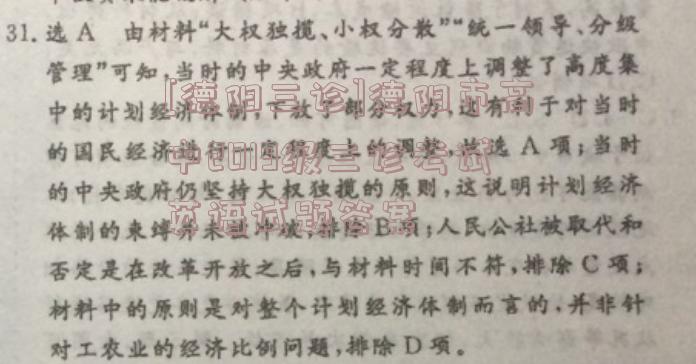 31.选A 由材料“大权独揽、小权分散”“统一领导、分级
管理”可知,当时的中央政府一定程度上调整了高度集
中的计划经济体制,下放了部分权力,这有利于对当时
的国民经济进行一定程度上的调整,故选A项;当时
的中央政府仍坚持大权独揽的原则,这说明计划经济
体制的束缚并未被冲破,排除B项;人民公社被取代和
否定是在改革开放之后,与材料时间不符,排除C项;
材料中的原则是对整个计划经济体制而言的,并非针
对工农业的经济比例问题,排除D项。
[德阳三诊]德阳市高
中2019级三诊考试
英语试题答案